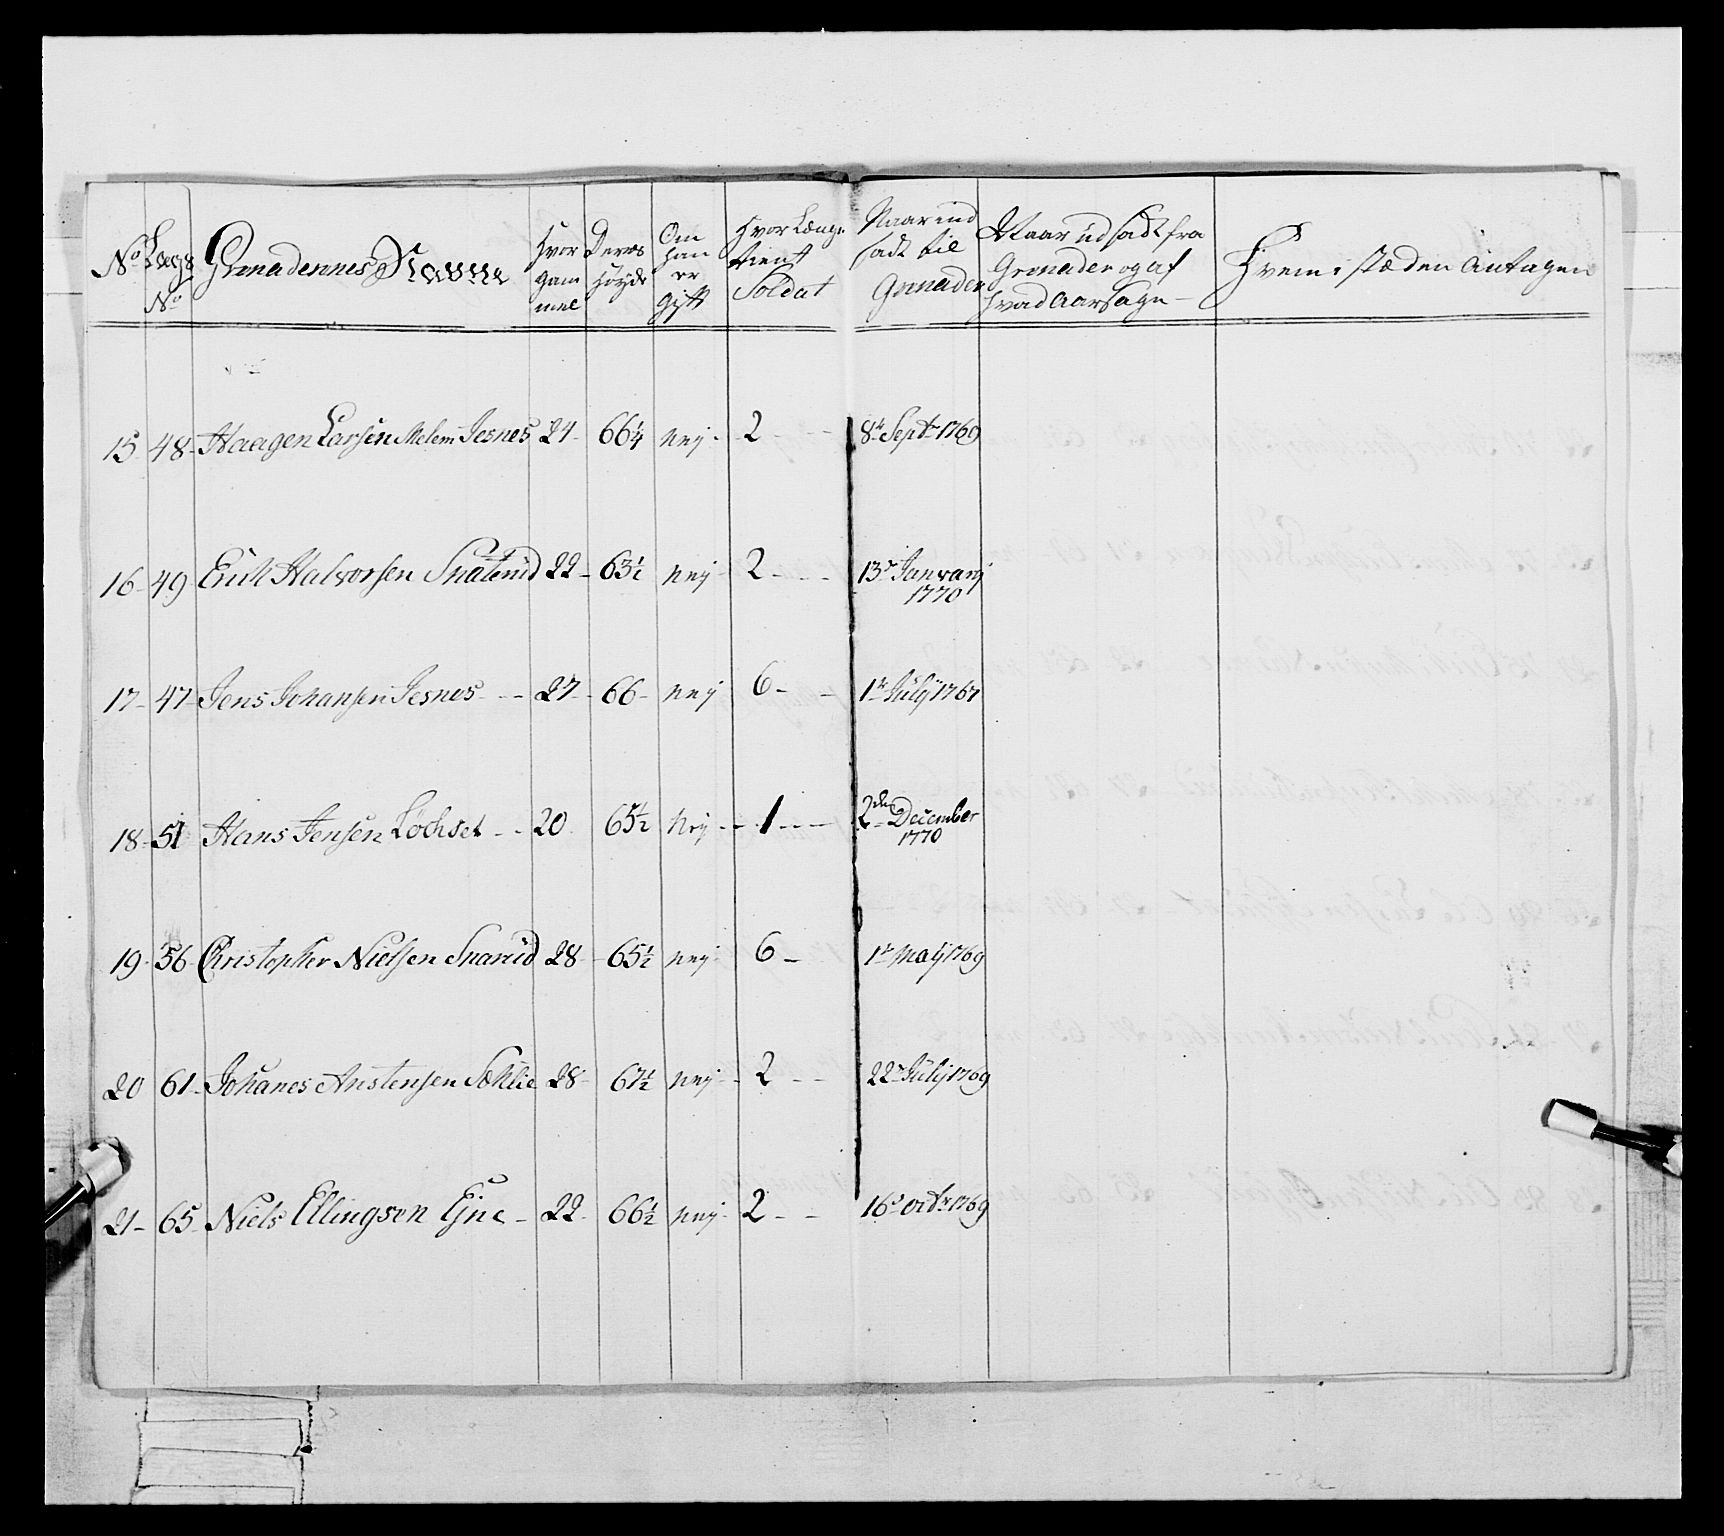 No Lægs No Grenadeernes Navne Hvor gam mel Deres Høyde Om han er gift Hvor Længe tient Soldat Naar ind sadt til Grenader Naar udsadt fra Grenader og af hvad Aarsage Hvem i stæden Antagen
15 48 Haagen Larsen Melem Jesnes 24 66 1/4 nej 2 8de Septr 1769
16 49 Erich Halvorsen 22 63 1/2 nej 2 13de Januarij
1770
17 47 Jens Johansen Jesnes 27 66 nej 6 1te Julij 1767
18 51 Hans Jensen Lochset 20 65 1/2 Nej 1 2den December
1770
19 56 Christopher Nielsen Snarud 28 65 1/2 nej 6 1te Maij 1769
20 61 Johanes Anstensen Sæhlie 28 67 1/2 nej 2 22de Julij 1769
21 65 Niels Ellingsen Ejne 22 66 1/2 nej 2 16de Octbr 1769